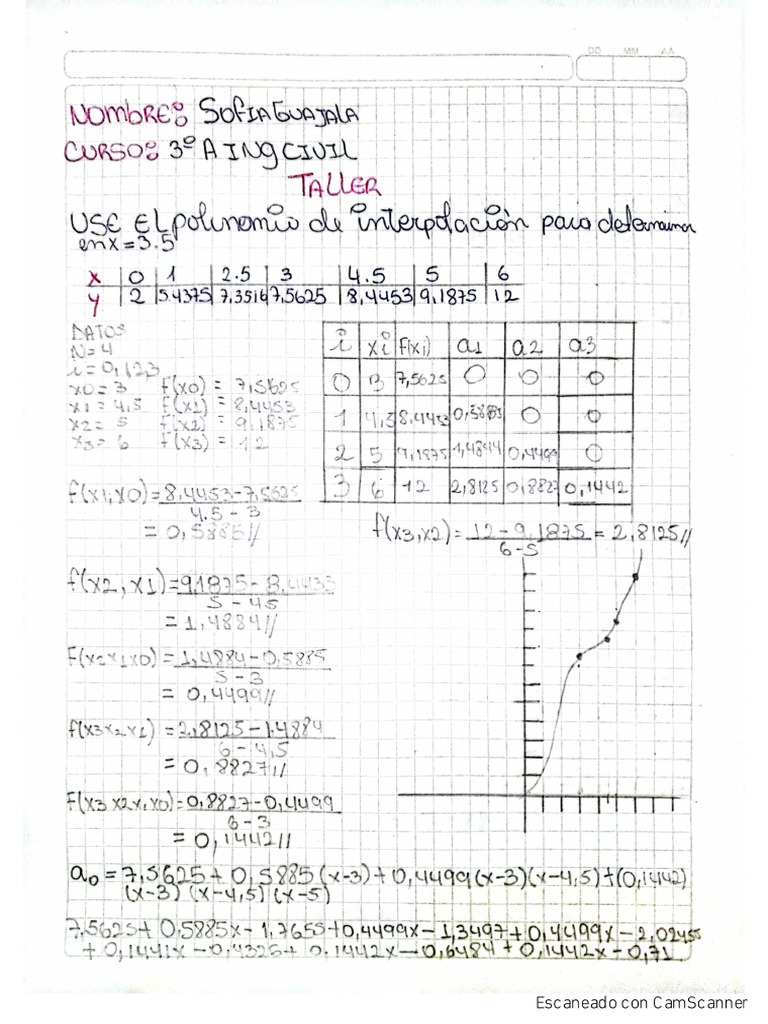 DD MM AA
Nombre: Sofia Guajala
Curso: 3º A Ing Civil
Taller
Use el polinomio de interpolación para determinar
en x = 3.5
x 0 1 2.5 3 4.5 5 6
y 2 5.4375 7,3516 7,5625 8,4453 9,1875 12
Datos
N= 4
i = 0,1,2,3
x0 = 3 f(x0) = 7,5625
x1 = 4,5 f(x1) = 8,4453
x2 = 5 f(x2) = 9,1875
x3 = 6 f(x3) = 12
i xi f(xi) a1 a2 a3
0 3 7,5625 0 0 0
1 4,5 8,4453 0,5885 0 0
2 5 9,1875 1,4844 0,4499 0
3 6 12 2,8125 0,8827 0,1442
f(x1,x0) = 8,4453-7,5625
4.5 - 3
= 0,5885//
f(x3,x2) = 12-9,1875 = 2,8125//
6-5
f(x2,x1) = 9,1875-8,4433
5 - 45
= 1,4884//
f(x2x1x0) = 1,4884-0,5885
5-3
= 0,4499//
f(x3x2x1) = 2,8125-1.4884
6-4,5
= 0,8827//
f(x3x2x1x0) = 0,8827-0,4499
6-3
= 0,1442//
a0 = 7,5625 + 0,5885 (x-3) + 0,4499(x-3)(x-4,5) + (0,1442)
(x-3) (x-4,5) (x-5)
7,5625 + 0,5885x - 1,7655 + 0,4499x - 1,3497 + 0,4499x - 2,02455
+ 0,1441x - 0,4326 + 0,1442x - 0,6484 + 0,1442x - 0,71
Escaneado con CamScanner